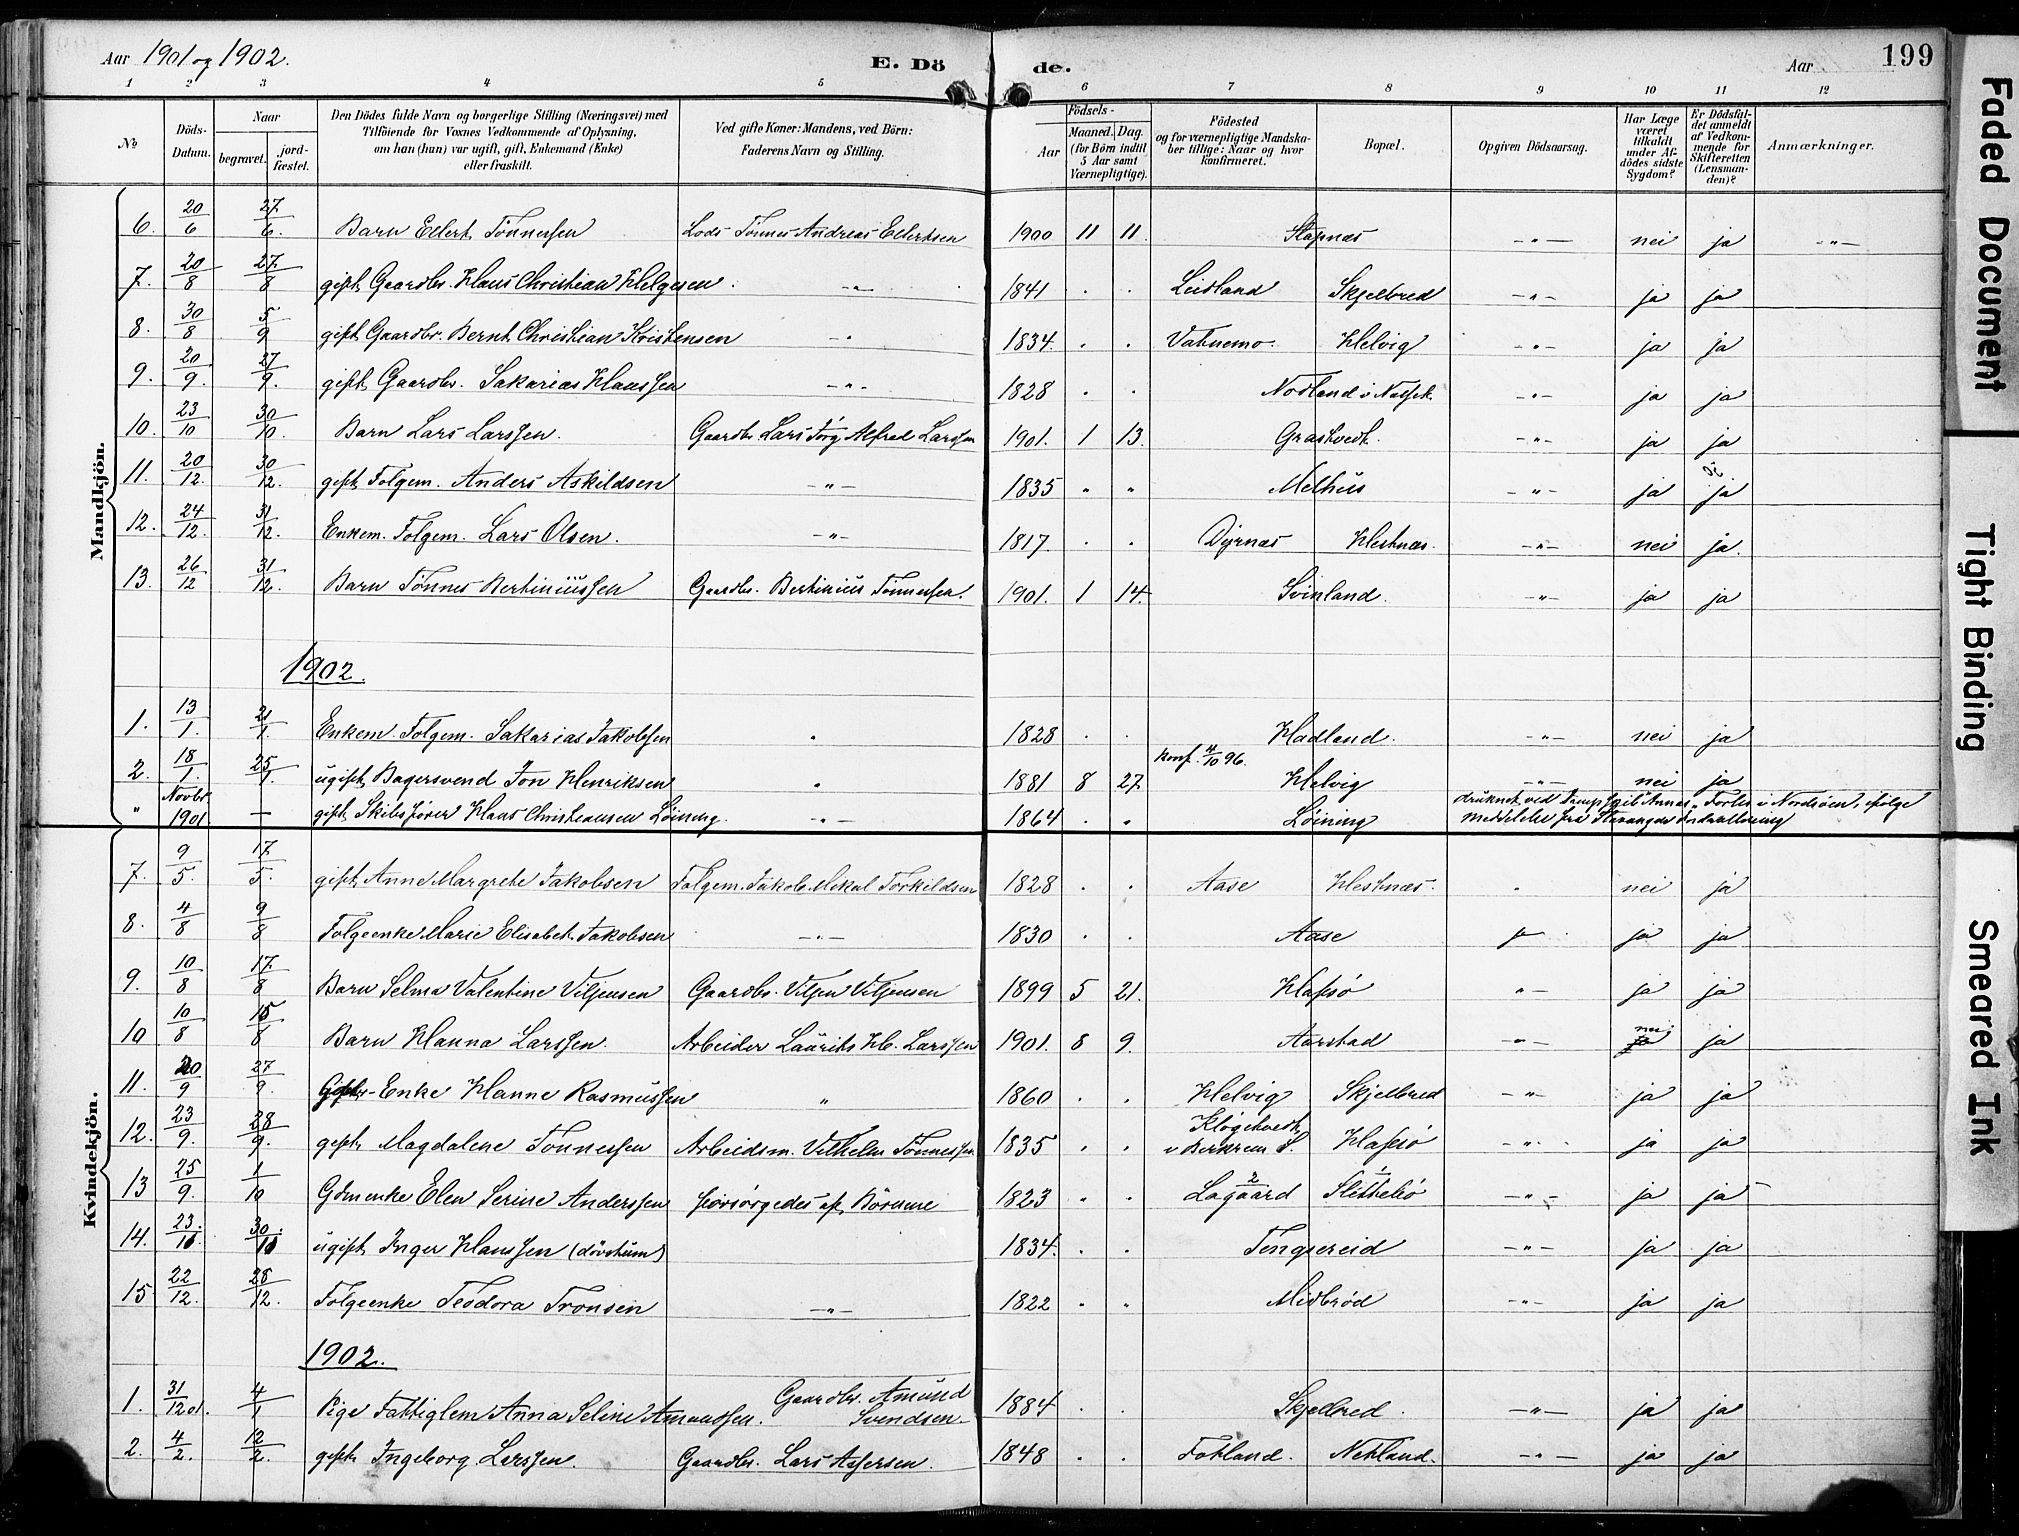 Aar 1901 og 1902. E. Dö de. Aar 199
1 2 3 4 5 6 7 8 9 10 11 12
No
Döds-Datum.
Naar
begravet. jord-fæstet.
Den Dödes fulde Navn og borgerlige Stilling (Næringsvei) med
Tilföiende for Voxnes Vedkommende af Oplysning,
om han (hun) var ugift, gift, Enkemand (Enke)
eller fraskilt.
Ved gifte Koner: Mandens, ved Börn:
Faderens Navn og Stilling.
Födsels-
Aar
Maaned. Dag.
(for Börn indtil
5 Aar samt
Værnepligtige).
Födested
og for værnepligtige Mandska-
ber tillige: Naar og hvor
konfirmeret.
Bopæl.
Opgiven Dödsaarsag.
Har Læge
været
tilkaldt
under Af-
dödes sidste
Sygdom?
Er Dödsfal-
det anmeldt
af Vedkom-
mende for
Skifteretten
(Lensman-
den)?
Anmærkninger.
Mandkjön.
6. 20/6 27/6. Barn Ellert Tönnessen Lods Tönnes Andreas Ellertsen 1900 11 11. Stapnæs -"- nei ja -"-
7. 20/8 27/8 gift Gaardbr. Hans Christian Helgesen -"- 1841 . . Leidland Skjelbred -"- ja ja
8. 30/8 5/9 gift Gaardbr. Bernt Christian Kristensen -" 1834. . . Vatnemo. Helvig -"- ja ja
9. 20/9. 27/9. gift Gaardbr. Sakarias Hanssen -"- 1828 . . Nodland i -"- ja ja
10. 23/10 30/10. Barn Lars Larssen. Gaardbr Lars Jörg. Alfred Larssen 1901. 1 13. Grastvedt. -"- ja ja
11. 20/12. 30/12. gift Folgem. Anders Askildsen -"- 1835 " " Melhus -"- ja ja
12. 24/12. 31/12. Enkem. Folgem. Lars Olsen. -"- 1817. . . Dyrnæs Hestnæs. -"- nei ja.
13. 26/12 31/12. Barn Tönnes Bertiniussen Gaardbr. Bertinius Tönnessen. 1901. 1 14. Svinland. -"- ja ja
1902.
1. 13/1. 21/1. Enkem. Folgem. Sakarias Jakobsen " 1828 . . Hadland. -"- nei ja
Konf. 4/10 96.
2. 18/1. 25/1. ugift Bagersvend Jon Henriksen " 1881 8 27. Helvig -"- nei ja
" Novbr 1901 — gift Skibsfører Hans Christiansen Löining. -"- 1864 . " Löining druknet ved i Nordsöen, ifölge
Meddelelse fra Stavanger
Kvindekjön.
7. 9/5. 17/5. gift Anne Margrete Jakobsen Folgem. Jakob Mikal Torkildsen 1828 . . Aase Hestnæs. . nei ja
8. 4/8 9/8 Folgeenke Marie Elisabet Jakobsen -"- 1830 . . Aase ja ja
9. 10/8 17/8 Barn Selma Valentine Viljensen Gaardbr. Viljen Viljensen 1899 5 21. Hafsö "- ja ja
10 10/8 15/8 Barn Hanna Larssen. Arbeider Laurits Larssen 1901. 8 9. Aarstad -"- nei ja
11. 20/9 27/9. Enke Hanne Rasmussen " 1860 . . Helvig Skjelbred -"- ja ja
12. 23/9. 28/9. gift Magdalene Tönnessen Arbeidsm. Vilhelm Tönnessen 1835 . . i Berkrem S. Hafsö -"- ja ja
13 25/9. 1/10 Gdmenke Elen Serine Anderssen forsörgedes af Börnene 1823 . . Lagaard Slettebö -"- ja ja
14. 23./10. 30./10 ugift Inger Hanssen (dövstum) 1834. . . Tengsereid -"- ja ja
15 22/12. 28/12. Folgeenke Teodora Tronsen -"- 1822 . " Midbröd -"- ja ja
1902.
1. 31/12 01. 4/1 Pige Fattiglem Anna Seline Amundsen. Gaardbr. Amund Svendsen. 1884 . . Skjelbred. -"- ja ja
2. 4/2. 12/2. gift Ingeborg Larssen. Gaardbr. Lars Assersen. 1848 . . Fotland. Netland. -"- ja ja
Faded Document
Tight Binding
Smeared Ink